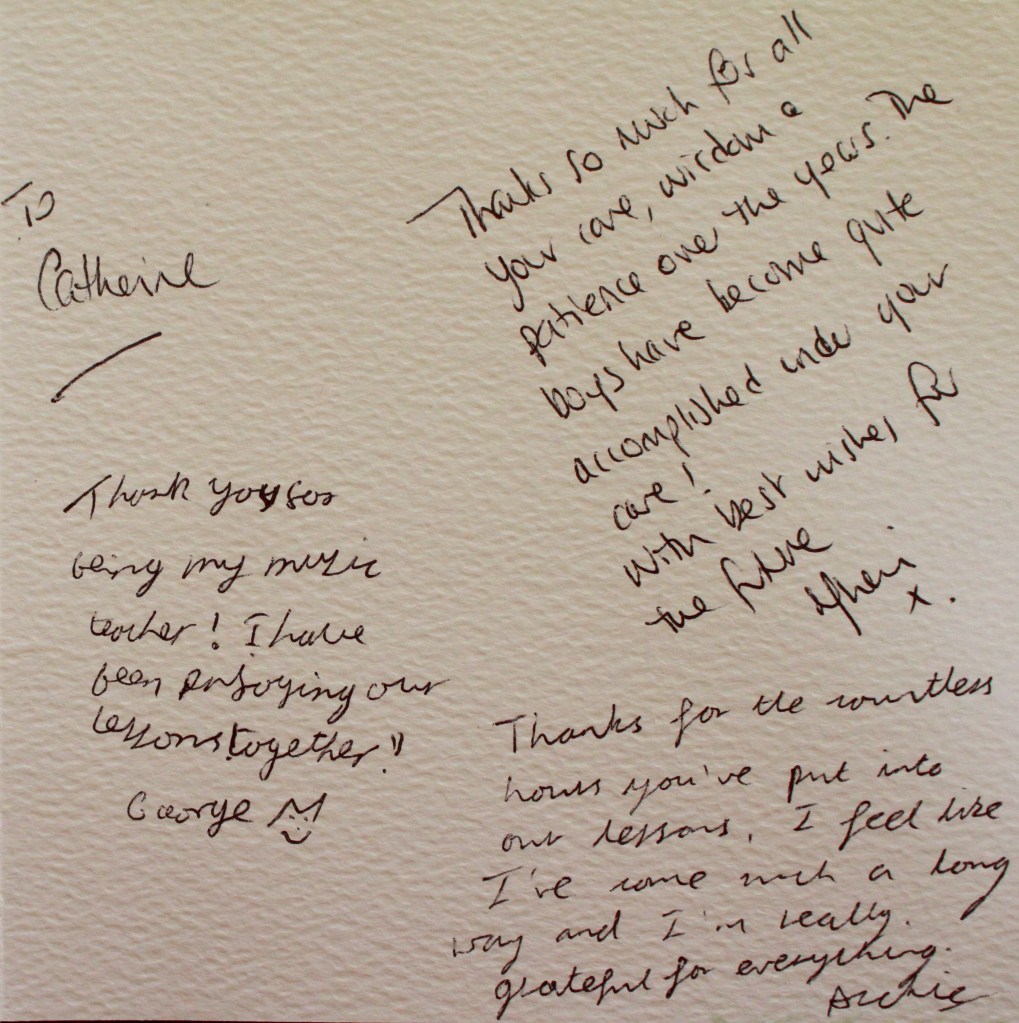 To
Catherine
Thanks so much for all
your care, wisdom &
patience over the years. The
boys have become quite
accomplished under your
care!
With best wishes for
the future
x.
Thank you for
being my music
teacher! I have
been enjoying our
lessons together!!
George
Thanks for the countless
hours you've put into
our lessons. I feel like
I've come such a long
way and I'm really
grateful for everything.
Archie